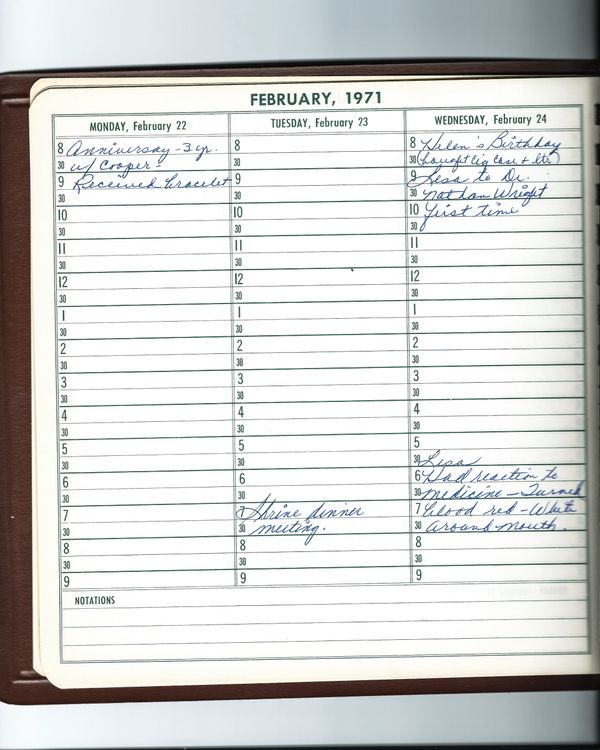 FEBRUARY, 1971
MONDAY, February 22
8 Anniversary - 3 yr.
30 w/ Cooper -
9 Received bracelet
30
10
30
11
30
12
30
1
30
2
30
3
30
4
30
5
30
6
30
7
30
8
30
9
TUESDAY, February 23
8
30
9
30
10
30
11
30
12
30
1
30
2
30
3
30
4
30
5
30
6
30
7 Shrine dinner
30 meeting.
8
30
9
WEDNESDAY, February 24
8 Helen's Birthday
30 (bought cig case & ltr)
9 Lesa to Dr.
30 Nathan Wright
10 first time
30
11
30
12
30
1
30
2
30
3
30
4
30
5
30 Lesa
6 Had reaction to
30 medicine - Turned
7 blood red - White
30 around mouth.
8
30
9
NOTATIONS